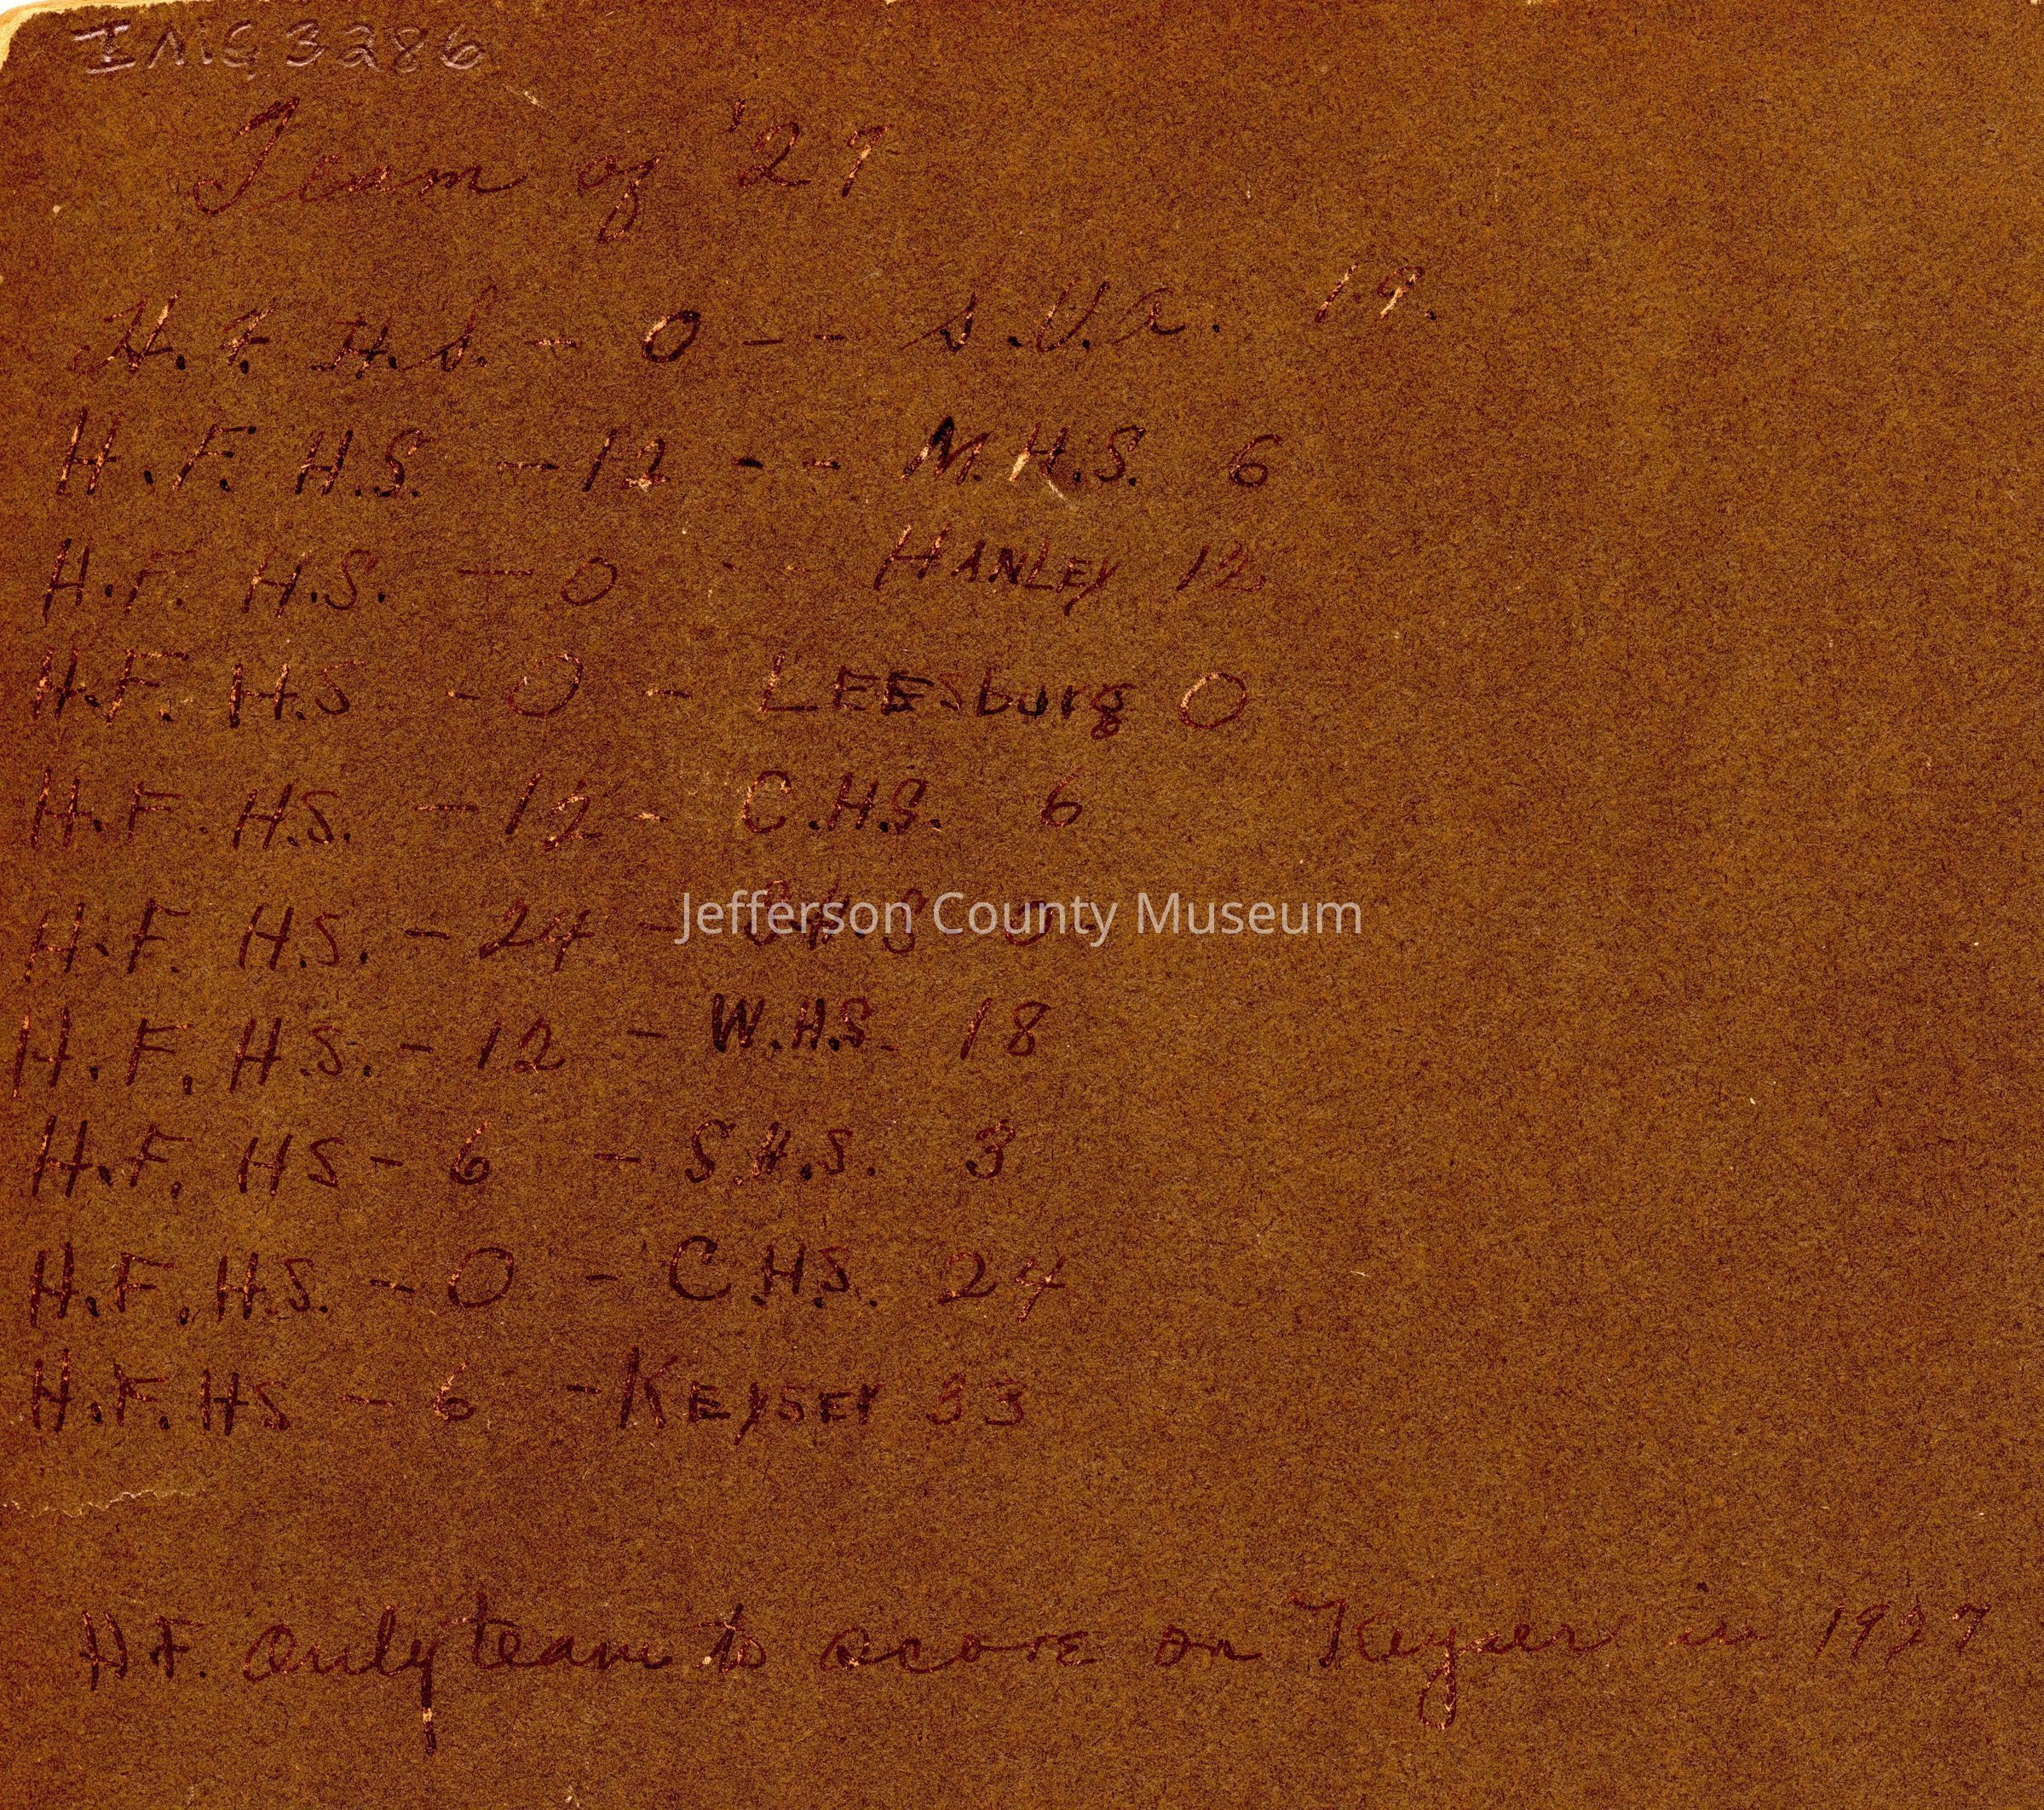 IMG 3286
Team of '27
H. F. H.S. - 0 - - S.V.A. 19.
H.F. H.S. - 12 - - M.H.S. 6
H.F. H.S. - 0 - - HANLEY 12
H.F. H.S - 0 - LEEsburg 0
H.F. H.S. - 12 - C.H.S. 6
H.F. H.S. - 24 - H.S 0
Jefferson County Museum
H.F. H.S. - 12 - W.H.S. 18
H.F. HS - 6 - S.H.S. 3
H.F. H.S. - 0 - C.H.S. 24
H.F. HS - 6 - KEYSEr 33
H.F. only team to score on Keyser in 1927